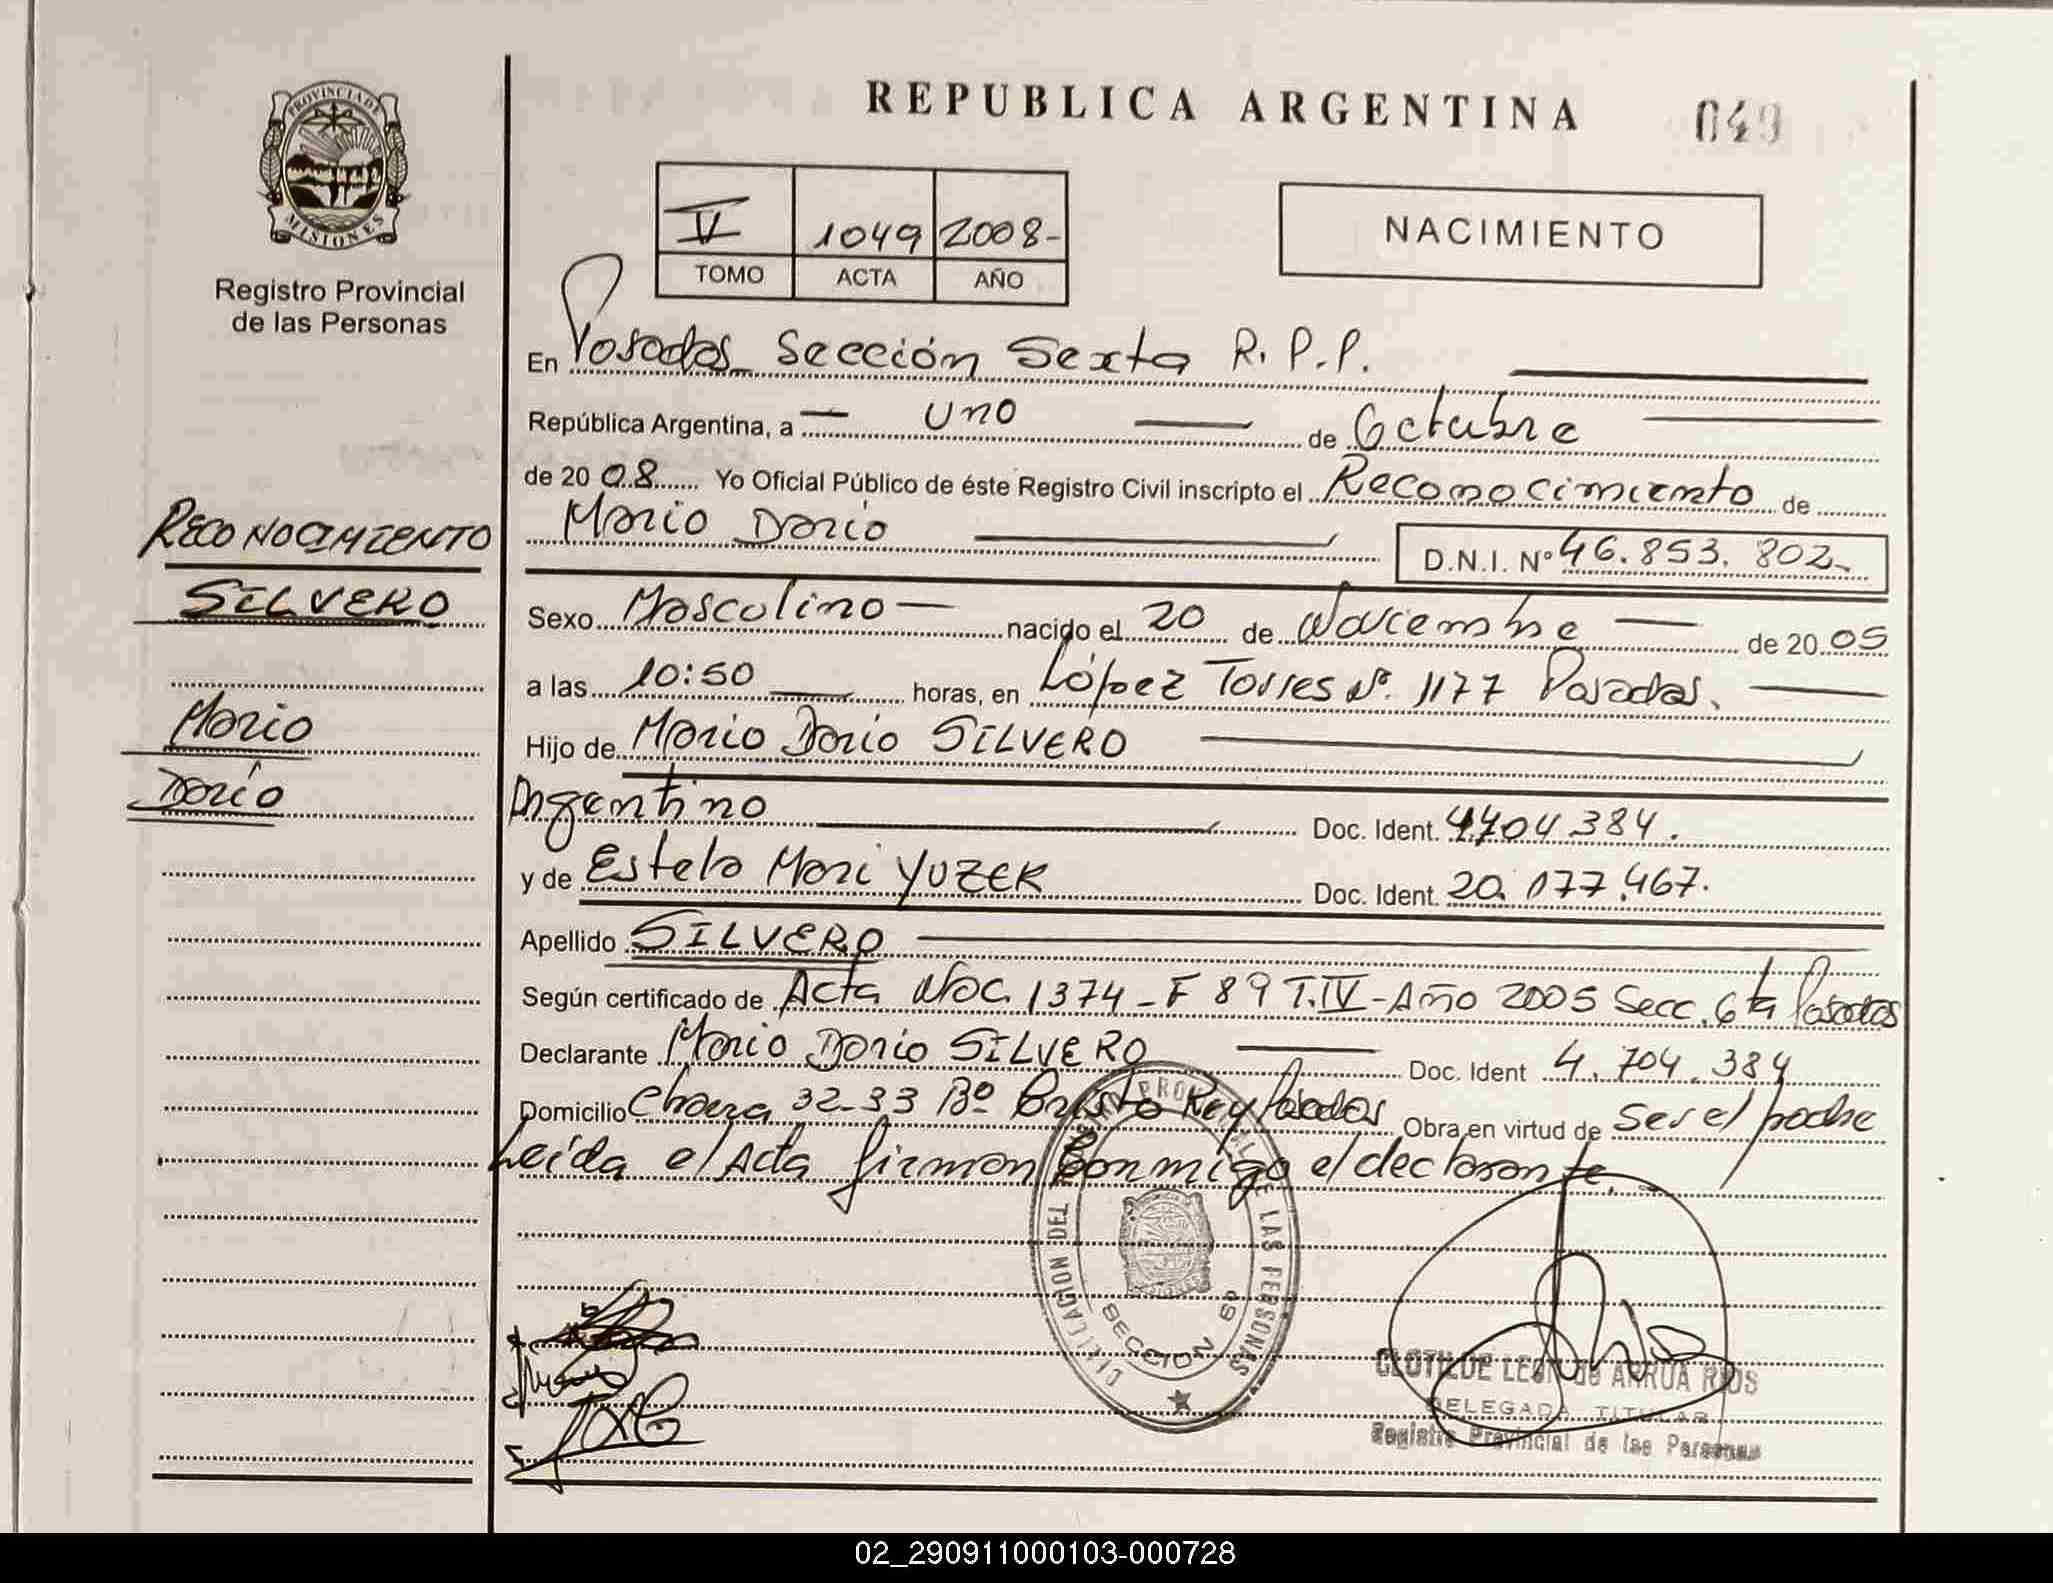 REPUBLICA ARGENTINA
049
PROVINCIA DE
MISIONES
Registro Provincial
de las Personas
V 1049 2008-
TOMO ACTA AÑO
NACIMIENTO
En Posadas Sección Sexta R.P.P.
República Argentina, a uno de Octubre
de 20 08 Yo Oficial Público de éste Registro Civil inscripto el Reconocimiento de
Mario Darío D.N.I. Nº 46.853.802-
Sexo Masculino nacido el 20 de Noviembre de 20 05
a las 10:50 horas, en López Torres Nº 1177 Posadas.
Hijo de Mario Dario SILVERO
Argentino Doc. Ident. 4.704.384.
y de Estela Mari YUZEK Doc. Ident. 20.177.467.
Apellido SILVERO
Según certificado de Acta Nac. 1374-F 89 T.IV-Año 2005 Secc. 6ta Posadas
Declarante Mario Darío SILVERO Doc. Ident 4.704.384
Domicilio Chacra 32-33 Bº Cristo Rey Posadas Obra en virtud de Ser el padre
Leída el Acta firman conmigo el declarante.
RECONOCIMIENTO
SILVERO
Mario
Darío
DE LAS PERSONAS
SECCION 6º
CLOTILDE LEON de ARRUA RIOS
DELEGADA TITULAR
Registro Provincial de las Personas
02_290911000103-000728